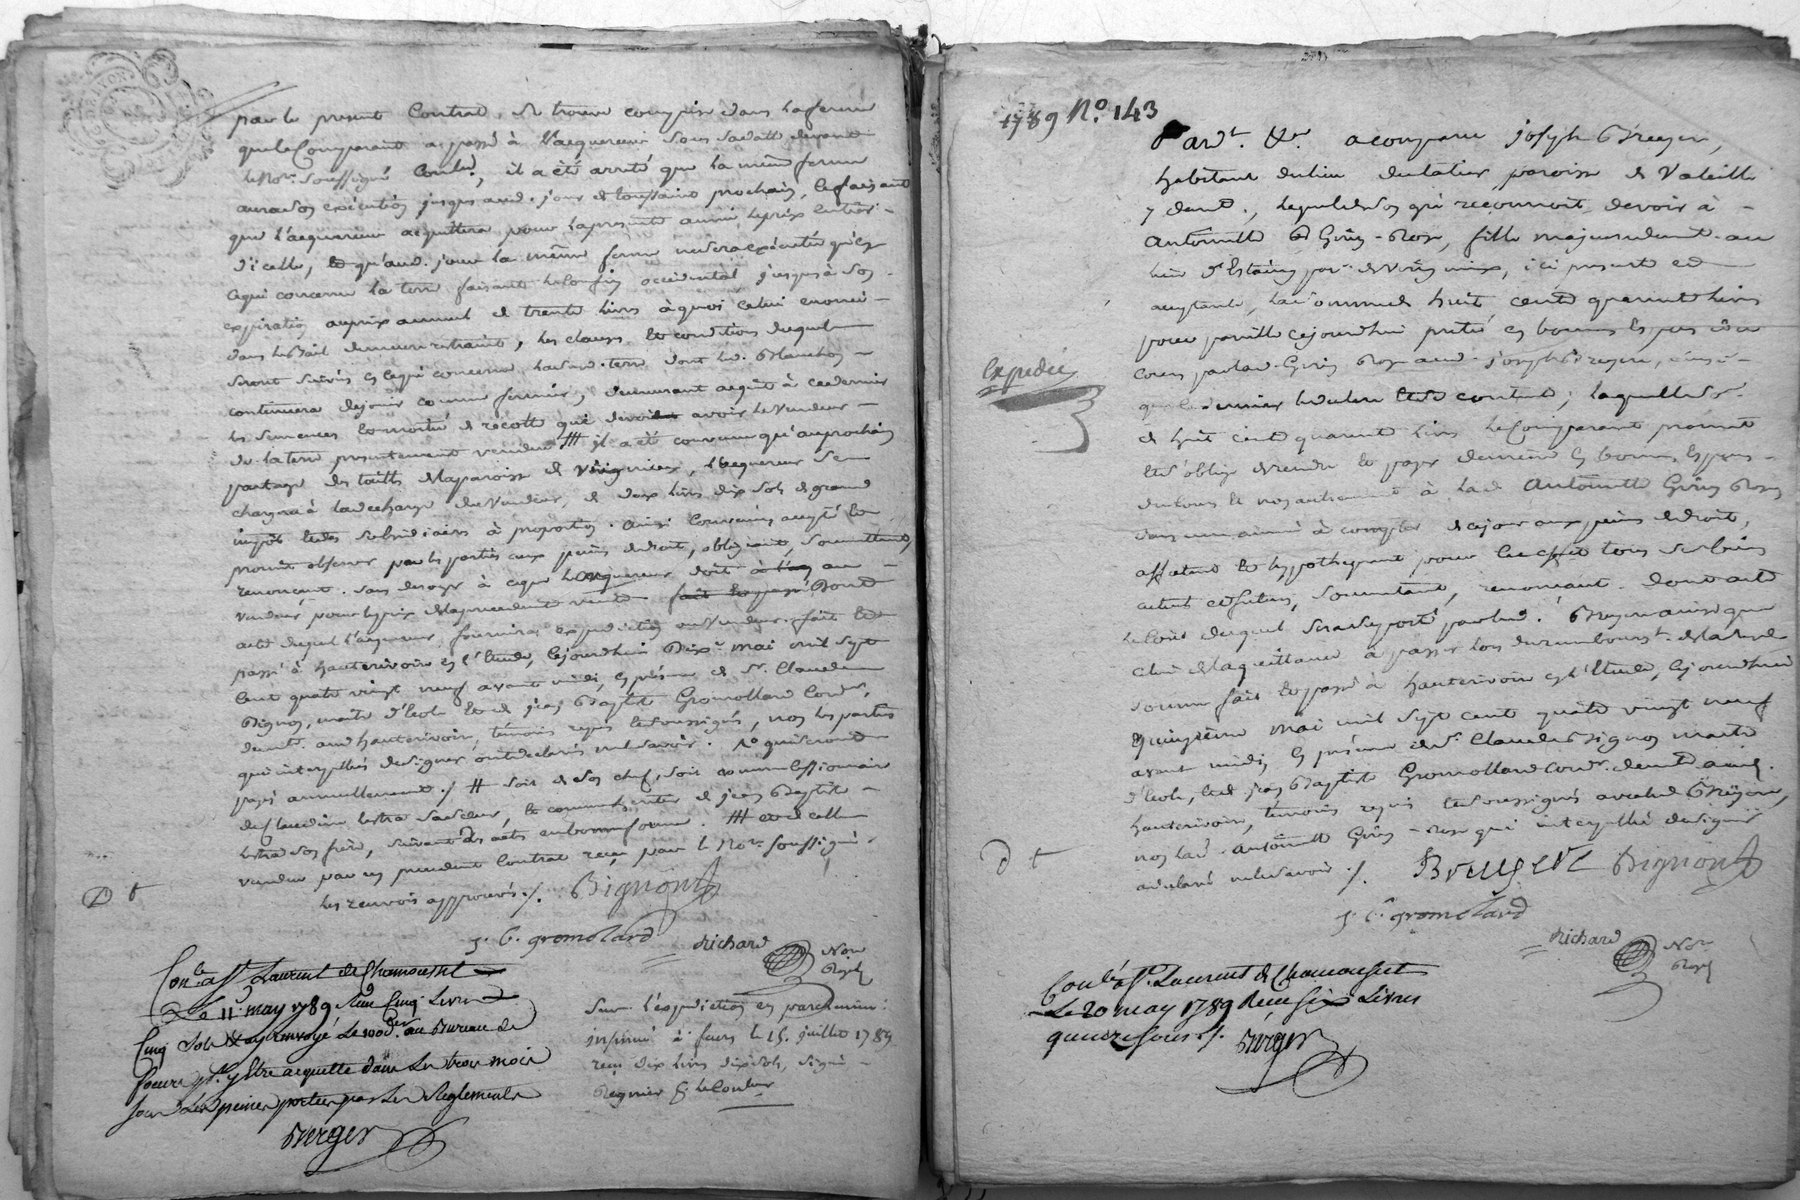 par le present Contrat, se trouve comprise dans la ferme
que le Comparant a passé à l'acquereur sous sa datte devant
le No.re soussigné Conlé., il a été arrêté que la même ferme
aura son exécution jusques aud. jour de toussaint prochain, le faisant
que l'acquereur acquittera pour la presente année le prix entier
d'icelle, et qu'aud. jour la même ferme ne sera exécutée qu'en
ce qui concerne la terre faisant le confin occidental jusques à son
expiration au prix annuel de trente livres à quoi celui enoncé
dans le Bail demeure restraint, les clauses et conditions duquel
seront suivies en ce qui concerne lad. terre dont led. Blanchon
continuera de jouir comme fermier, demeurant acquis à ce dernier
les semences et moitié de récolte que devoit avoir le Vendeur
de la terre presentement vendue /// il a été convenu qu'au prochain
partage des tailles de la paroisse de Virigneux, l'acquereur se
chargera à la décharge du Vendeur, de deux livres dix sols de grand
impôt et des subsidiaires à proportion. ainsi convenu accepté et
promis observer par les parties aux peines de droit, obligeant, soumettant,
renonçant. sans deroger à ce que l'acquereur doit au
vendeur, pour le prix de la precedente vente dont
acte duquel l'acquereur fournira expedition au Vendeur. fait et
passé à hauterivoire en l'Etude, cejourdhui dix.e mai mil sept
cent quatre vingt neuf avant midi, en présence de S.r Claude
Bignon, maitre d'école et de jean Baptiste Gromollard Cord.r,
demt. aud. hauterivoire, témoins requis et soussignés, non les parties
qui interpellées de signer ont déclaré ne le savoir.
payé annuellement ./ # soit de son chef, soit comme cessionnaire
de Claudine sa sœur, et comme héritier de jean Baptiste
son frère, suivant des actes en bonne forme. /// et de celle
vendue par un precedent Contrat reçu par le No.re soussigné.
les renvois approuvés ./. Bignon
J. B. gromolard Richard No.re Royal
D t
Con.lé a S.t Laurent de Chamousset
Le 11 may 1789 Reçu Cinq Livres
Cinq sols & ay renvoyé le 100 d.er au Bureau de
feurs p.r y Etre acquitté dans les trois mois
sous les peines portées par les Reglements
Berger
Sur l'expedition en parchemin:
insinué à feurs le 15. juillet 1789
reçu dix livres dix sols, signé
Regnier
1789 N.o 143
Pard.t &.r a comparu joseph Breyere,
habitant du lieu paroisse de Valeille
y demt., lequel de son gré reconnoit devoir à
Antoinette Grün-Rose, fille majeure demt. au
lieu d'Estaing par.se de Virigneux, ici presente et
acceptante, la somme de huit cent quarante livres
pour pareille cejourdhui pretée en bonnes Especes
cours par lad. Grün Rose aud. joseph Breyere, ainsi
que ce dernier le declare et s'en contente; laquelle so.
de huit cent quarante livres le Comparant promet
et s'oblige de rendre et payer de même en bonnes Especes
du Cours et non autrement à lad. Antoinette Grün Rose
dans une année à compter de ce jour aux peines de droit,
affectant et hypothequant pour cet effet tous ses biens
actuels et futurs, soumettant, renonçant. dont acte
le Coût duquel sera supporté par led. Breyere ainsi que
celui de la quittance à passer lors du remboursem.t de lad.
somme fait et passé à hauterivoire en l'Etude, cejourdhui
quinzième mai mil sept cent quatre vingt neuf
avant midi, en présence de S.r Claude Bignon maitre
d'école, et de jean Baptiste Gromollard Cord.r demt. aud.
hauterivoire, témoins requis et soussignés avec led. Breyere,
non lad. Antoinette Grün-Rose qui interpellée de signer
a declaré ne le savoir ./. Breugere Bignon
J. B. gromolard
Richard No.re Royal
Expediée
D t
Conlé a S.t Laurent de Chamousset
Le 20 may 1789 Reçu Six Livres
quinze sous ./.
Berger